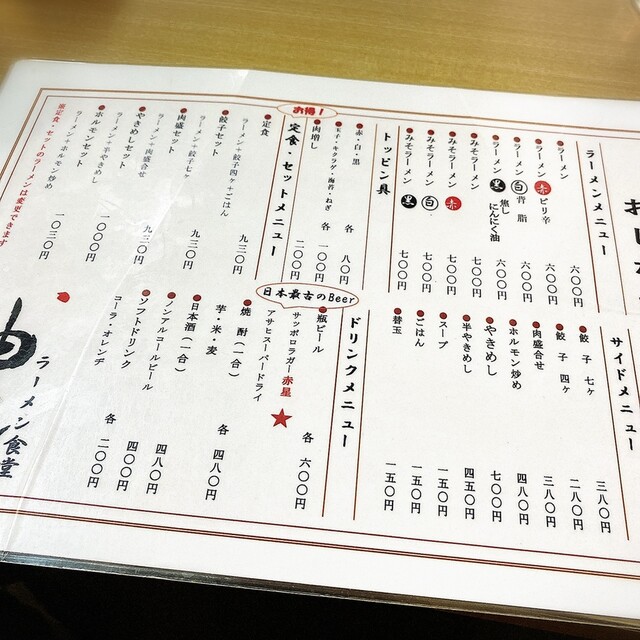 ラーメンメニュー
ラーメン 六〇〇円
ラーメン 赤 ピリ辛 六〇〇円
ラーメン 白 背脂 六〇〇円
ラーメン 黒 焦しにんにく油 六〇〇円
みそラーメン 七〇〇円
みそラーメン 赤 七〇〇円
みそラーメン 白 七〇〇円
みそラーメン 黒 七〇〇円
トッピン具
赤・白・黒 各 八〇円
玉子・キクラゲ・海苔・ねぎ 各 一〇〇円
肉増し 二〇〇円
お得!
定食・セットメニュー
定食
ラーメン+餃子四ヶ+ごはん 九三〇円
餃子セット
ラーメン+餃子七ヶ 九三〇円
肉盛セット
ラーメン+肉盛合せ 九三〇円
やきめしセット
ラーメン+半やきめし 一〇〇〇円
ホルモンセット
ラーメン+ホルモン炒め 一〇三〇円
※定食・セットのラーメンは変更できます
サイドメニュー
餃子 七ヶ 三八〇円
餃子 四ヶ 二八〇円
肉盛合せ 三八〇円
ホルモン炒め 四八〇円
やきめし 七〇〇円
半やきめし 四五〇円
スープ 一五〇円
ごはん 一五〇円
替玉 一五〇円
ドリンクメニュー
瓶ビール 各 六〇〇円
日本最古のBeer
サッポロラガー赤星
アサヒスーパードライ
焼酎(一合)
芋・米・麦 各 四八〇円
日本酒(一合) 四八〇円
ノンアルコールビール 四〇〇円
ソフトドリンク
コーラ・オレンヂ 各 二〇〇円
ラーメン食堂